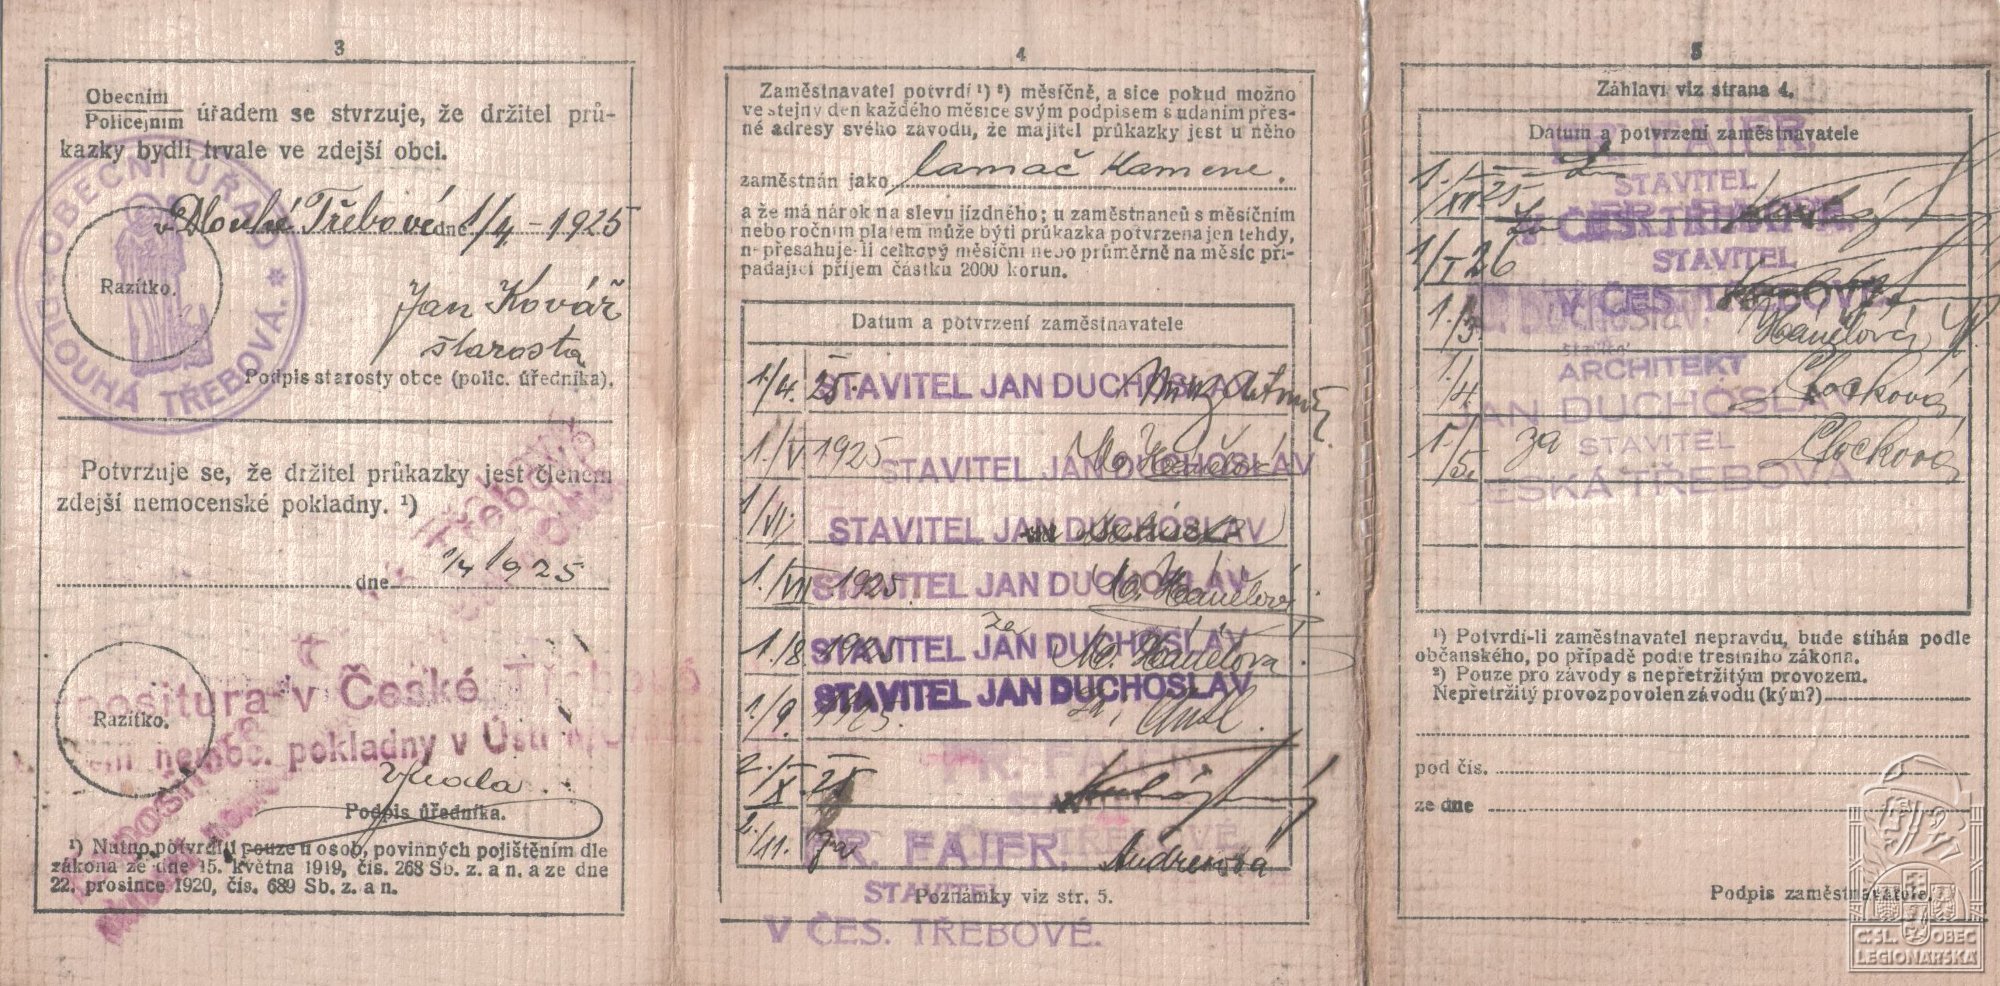 3
Obecním
Policejním úřadem se stvrzuje, že držitel prů-
kazky bydlí trvale ve zdejší obci.
OBECNÍ ÚŘAD * DLOUHÁ TŘEBOVÁ. *
v Dlouhé Třebové dne 1/4 - 1925
Razítko.
Jan Kovář
starosta
Podpis starosty obce (polic. úředníka).
Potvrzuje se, že držitel průkazky jest členem
zdejší nemocenské pokladny. ¹)
dne 1/4 1925
Razítko.
positura v České Třebové
nemoc. pokladny v Ústí
Podpis úředníka.
¹) Nutno potvrditi pouze u osob, povinných pojištěním dle
zákona ze dne 15. května 1919, čís. 268 Sb. z. a n. a ze dne
22. prosince 1920, čís. 689 Sb. z. a n.
4
Zaměstnavatel potvrdí ¹) ²) měsíčně, a sice pokud možno
ve stejný den každého měsíce svým podpisem s udáním přes-
né adresy svého závodu, že majitel průkazky jest u něho
zaměstnán jako lamač kamene.
a že má nárok na slevu jízdného; u zaměstnanců s měsíčním
nebo ročním platem může býti průkazka potvrzena jen tehdy,
n- přesahuje-li celkový měsíční nebo průměrně na měsíc při-
padající příjem částku 2000 korun.
Datum a potvrzení zaměstnavatele
1./4. 25 STAVITEL JAN DUCHOSLAV
1./V 1925 STAVITEL JAN DUCHOSLAV
1/VI. STAVITEL JAN DUCHOSLAV
1./VII 1925. STAVITEL JAN DUCHOSLAV
1./8. 1925 STAVITEL JAN DUCHOSLAV za
1./9. 1925. STAVITEL JAN DUCHOSLAV za
2./X. 25 FR. FAJFR.
2./11. za FR. FAJFR. Andresová
STAVITEL
Poznámky viz str. 5.
V ČES. TŘEBOVÉ.
5
Záhlaví viz strana 4.
Datum a potvrzení zaměstnavatele
FR. FAJFR.
1./XII 25
STAVITEL
V ČES. TŘEBOVÉ.
1/I 26
STAVITEL
V ČES. TŘEBOVÉ.
1./3.
1./4 ARCHITEKT
JAN DUCHOSLAV
1./5. za STAVITEL
ČESKÁ TŘEBOVÁ
¹) Potvrdí-li zaměstnavatel nepravdu, bude stíhán podle
občanského, po případě podle trestního zákona.
²) Pouze pro závody s nepřetržitým provozem.
Nepřetržitý provoz povolen závodu (kým?)
pod čís.
ze dne
Podpis zaměstnavatele.
ČSL. OBEC
LEGIONÁŘSKÁ